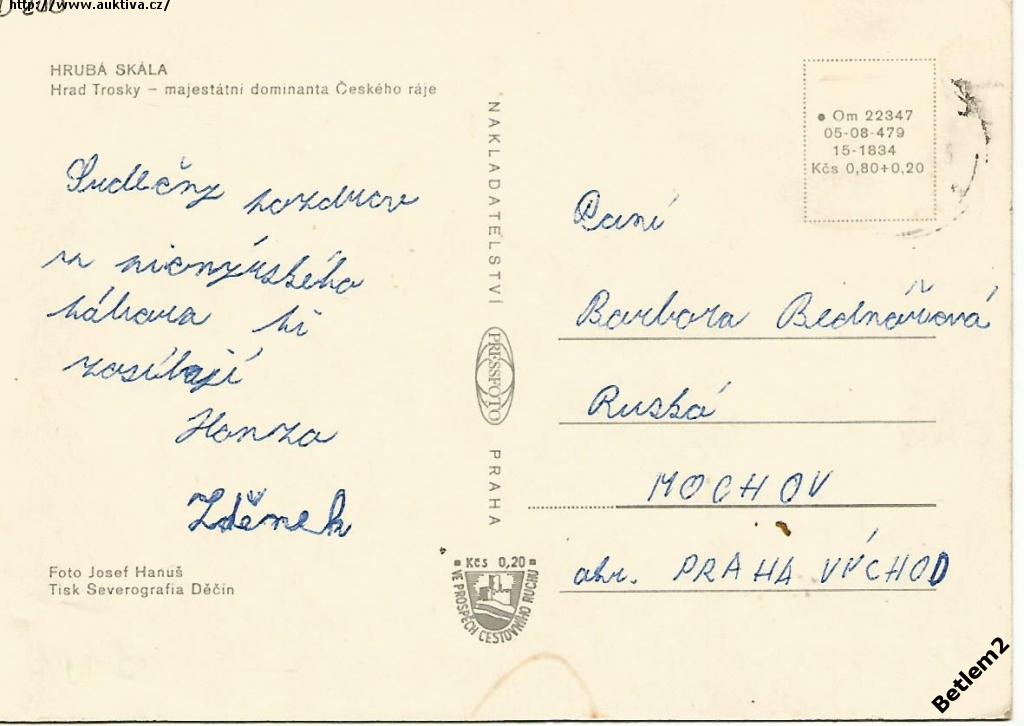 http://www.auktiva.cz/
HRUBÁ SKÁLA
Hrad Trosky – majestátní dominanta Českého ráje
Srdečný pozdrav
z pionýrského
tábora ti
zasílají
Honza
Zděnek
Foto Josef Hanuš
Tisk Severografia Děčín
NAKLADATELSTVÍ PRESSFOTO PRAHA
Kčs 0,20
VE PROSPĚCH CESTOVNÍHO RUCHU
Om 22347
05-08-479
15-1834
Kčs 0,80+0,20
Paní
Barbora Bednářová
Ruská
MOCHOV
okr. PRAHA VÝCHOD
Betlem2